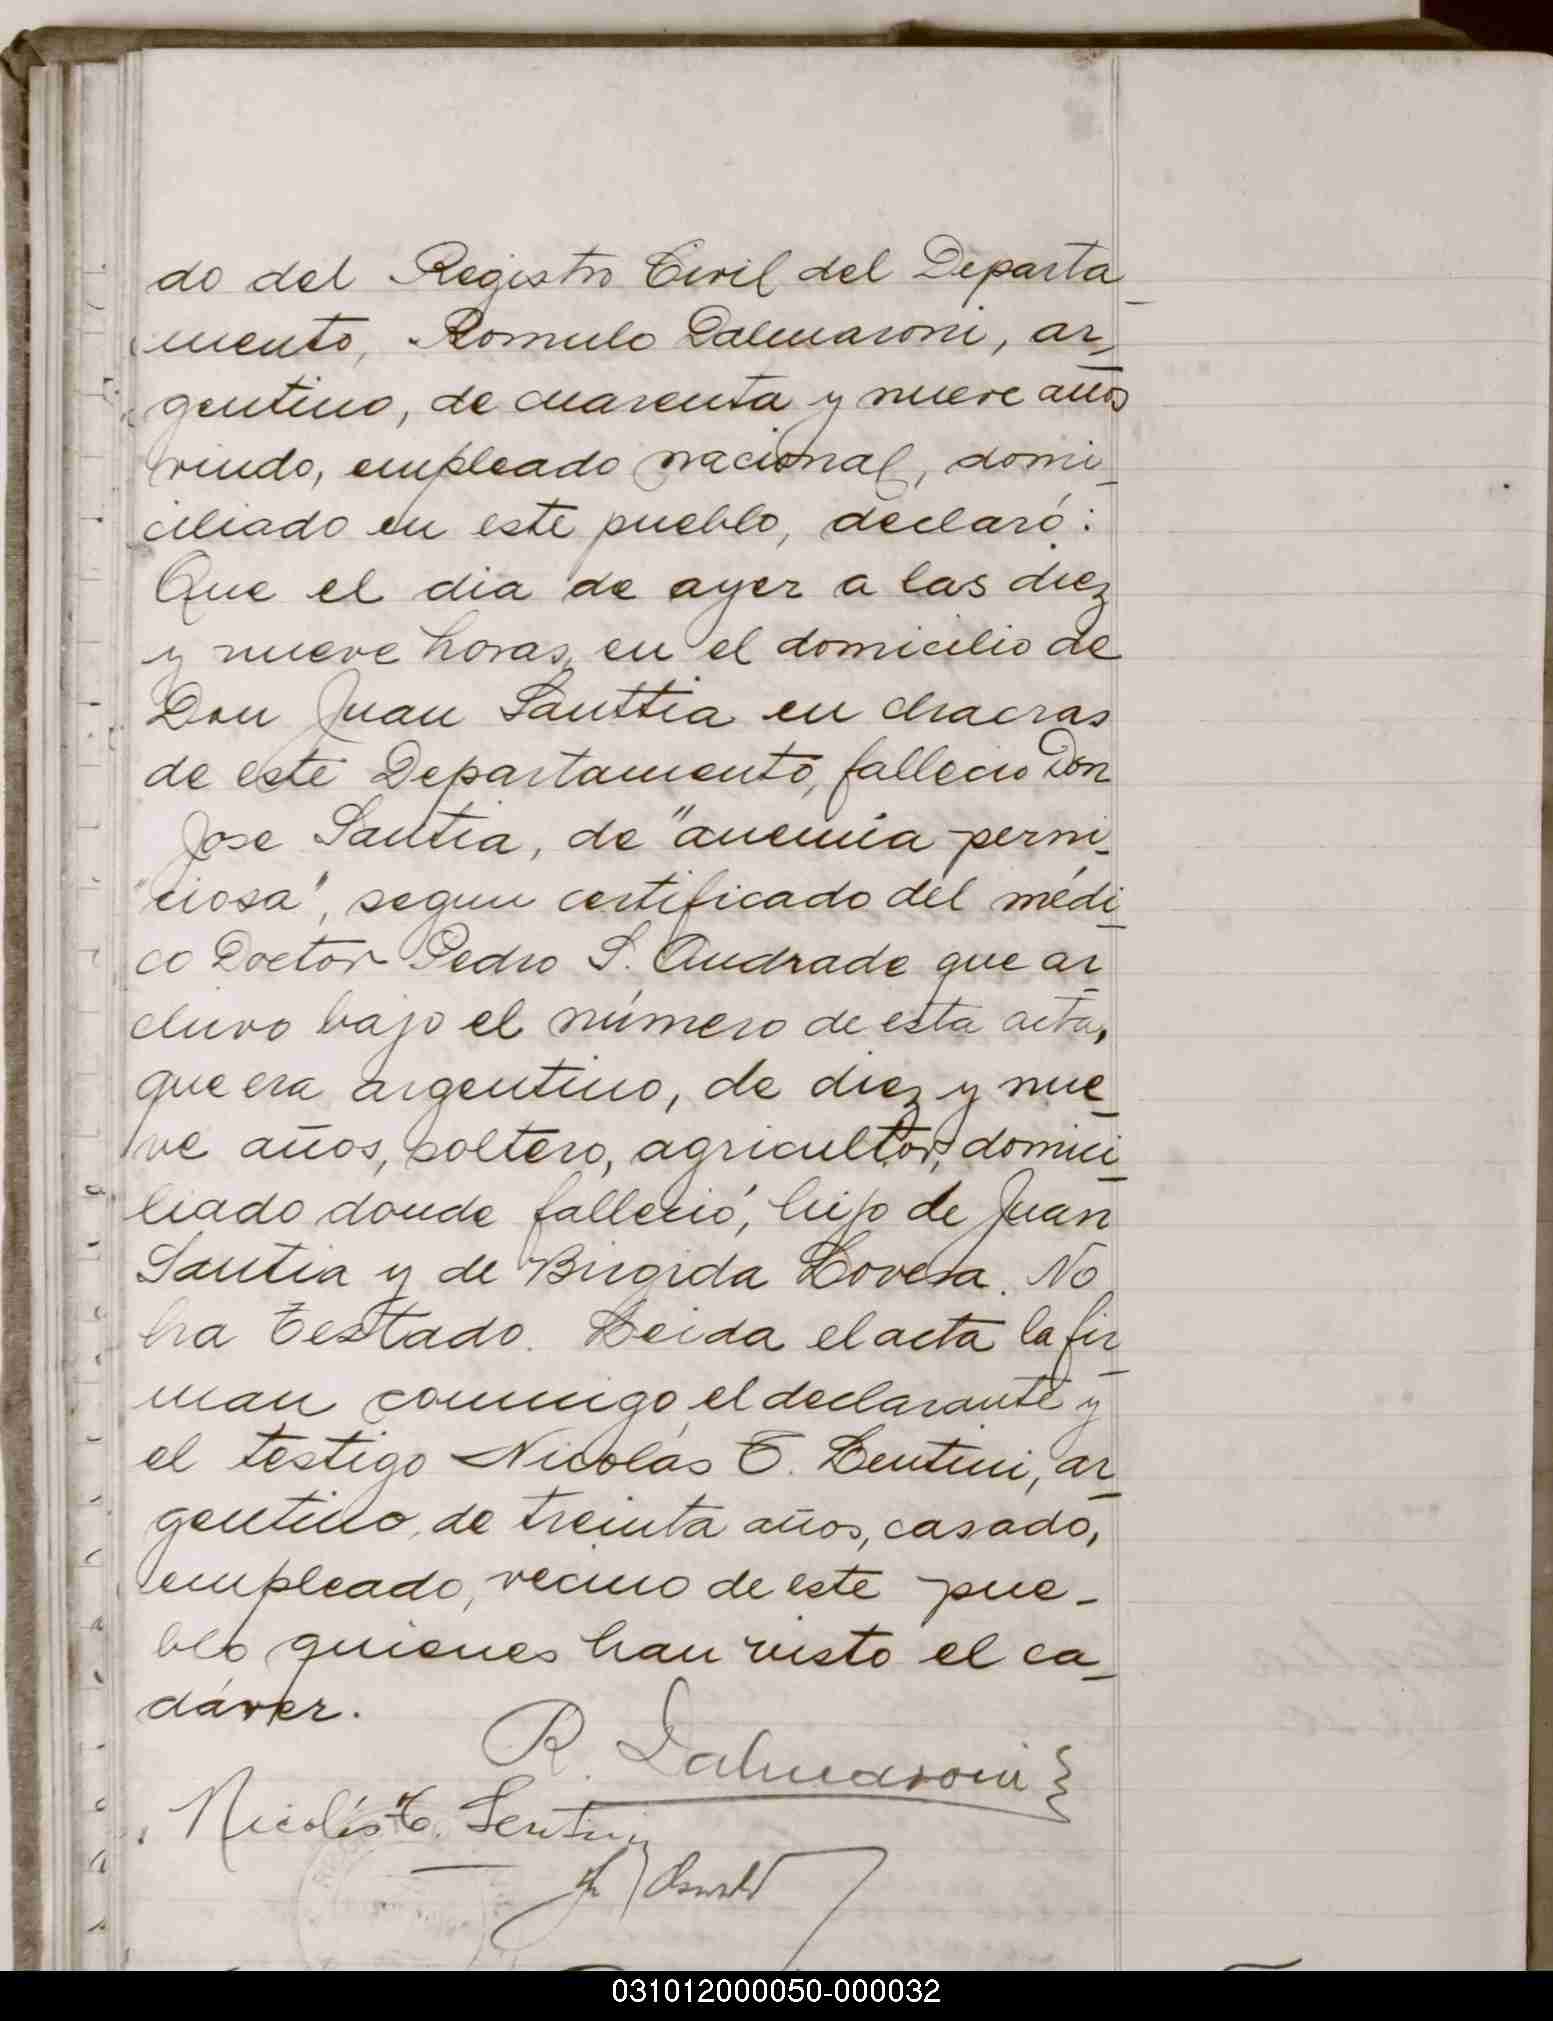 do del Registro Civil del Departa_
mento, Romulo Dalmaroni, ar_
gentino, de cuarenta y nueve años
viudo, empleado nacional, domi_
ciliado en este pueblo, declaró:
Que el dia de ayer a las diez
y nueve horas, en el domicilio de
Don Juan Santtia en chacras
de este Departamento, fallecio Don
Jose Santia, de "anemia perni_
"ciosa", segun certificado del médi_
co Doctor Pedro S. Andrade que ar_
chivo bajo el número de esta acta,
que era argentino, de diez y nue_
ve años, soltero, agricultor, domici_
liado donde falleció, hijo de Juan
Santia y de Birgida Lovera. No
ha testado. Leida el acta la fir_
man conmigo el declarante y
el testigo Nicolás T. Lentini, ar_
gentino, de treinta años, casado,
empleado, vecino de este pue-
blo quienes han visto el ca_
dáver.
R. Dalmaroni
Nicolás T. Lentini
Oswald
031012000050-000032